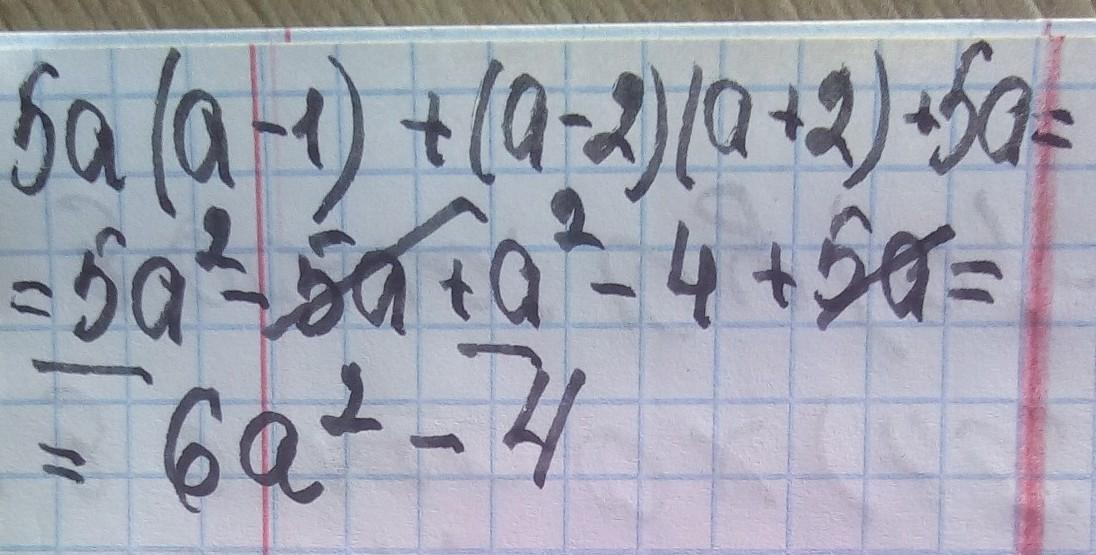 5a(a-1)+(a-2)(a+2)+5a=
=5a²-5a+a²-4+5a=
=6a²-4